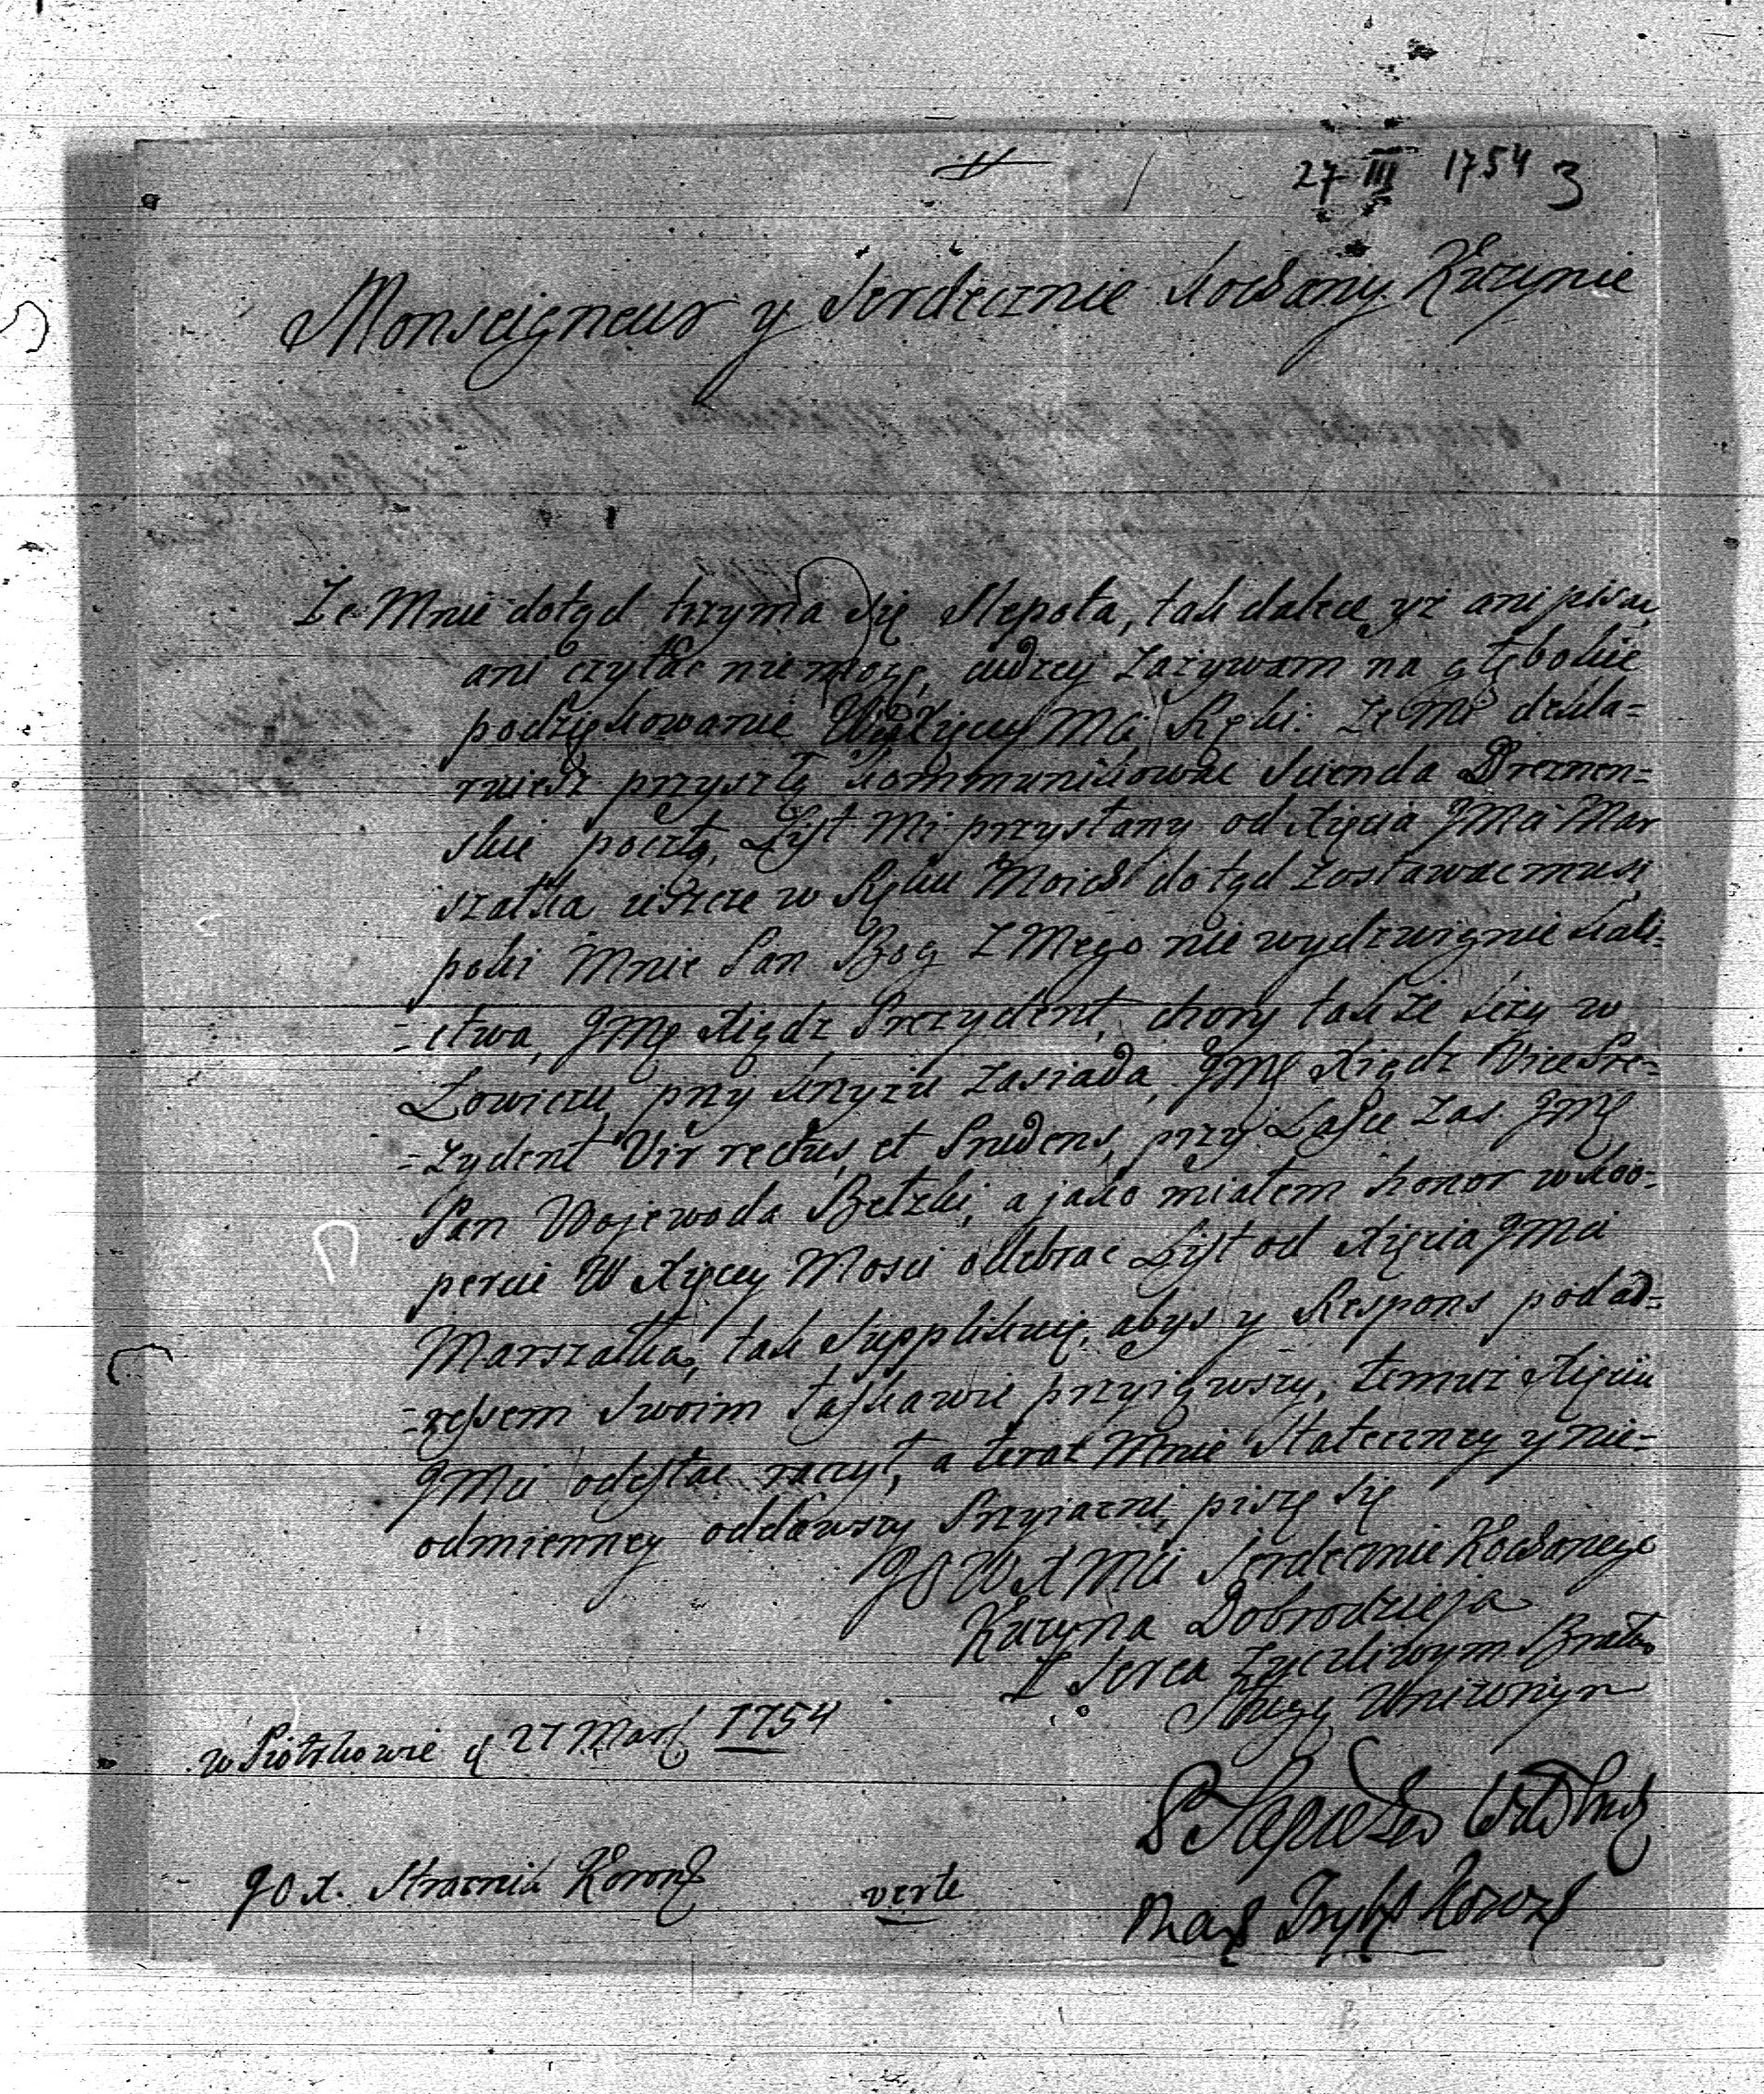 27 III 1754 3
Monseigneur y Serdecznie Kochany Kuzynie
Że Mnie dotąd trzyma się Slepota, tak dalece yż ani pisac,
ani czytac nie mogę, cudzey zażywam na głębokie
podziękowanie WXięcey Mci Ręki. że Mi
przyszłą kommunikowac
skie pocztą, Lyst Mi przysłany od Xięcia JMci Mar
szałka ieszcze w Ręku Moich dotąd zostawac musi,
poki Mnie Pan Bog z Mego nie wydzwignie kale-
-ctwa, JMę Xiądz Prezydent, chory takze leży w
Łowiczu, przy krzyżu zasiada, JMę Xiądz Vice Pre-
-zydent Vir rectus, et Prudens, przy Lasce zas JMę
Pan Wojewoda Bełzki, a jako miałem honor w koo-
perci W Xięcey Mosci odebrac Lyst od Xięcia JMci
Marszałka, tak Supplikuię, abys y Respons pod ad-
-resem Swoim łaskawie przyiąwszy, temuż Xięciu
JMci odesłac raczył, a teraz Mnie Stateczney y nie-
odmienney oddawszy Przyiazni, piszę się
JO W X Mci Serdecznie Kochanego
Kuzyna Dobrodzieja
Z Serca Życzliwym Bratem
Sługą Uniżonym
w Piotrkowie d 27 Mart 1754
P Sapieha
JO X. Straznik Koronę
verte
Marſ Tryb Koron